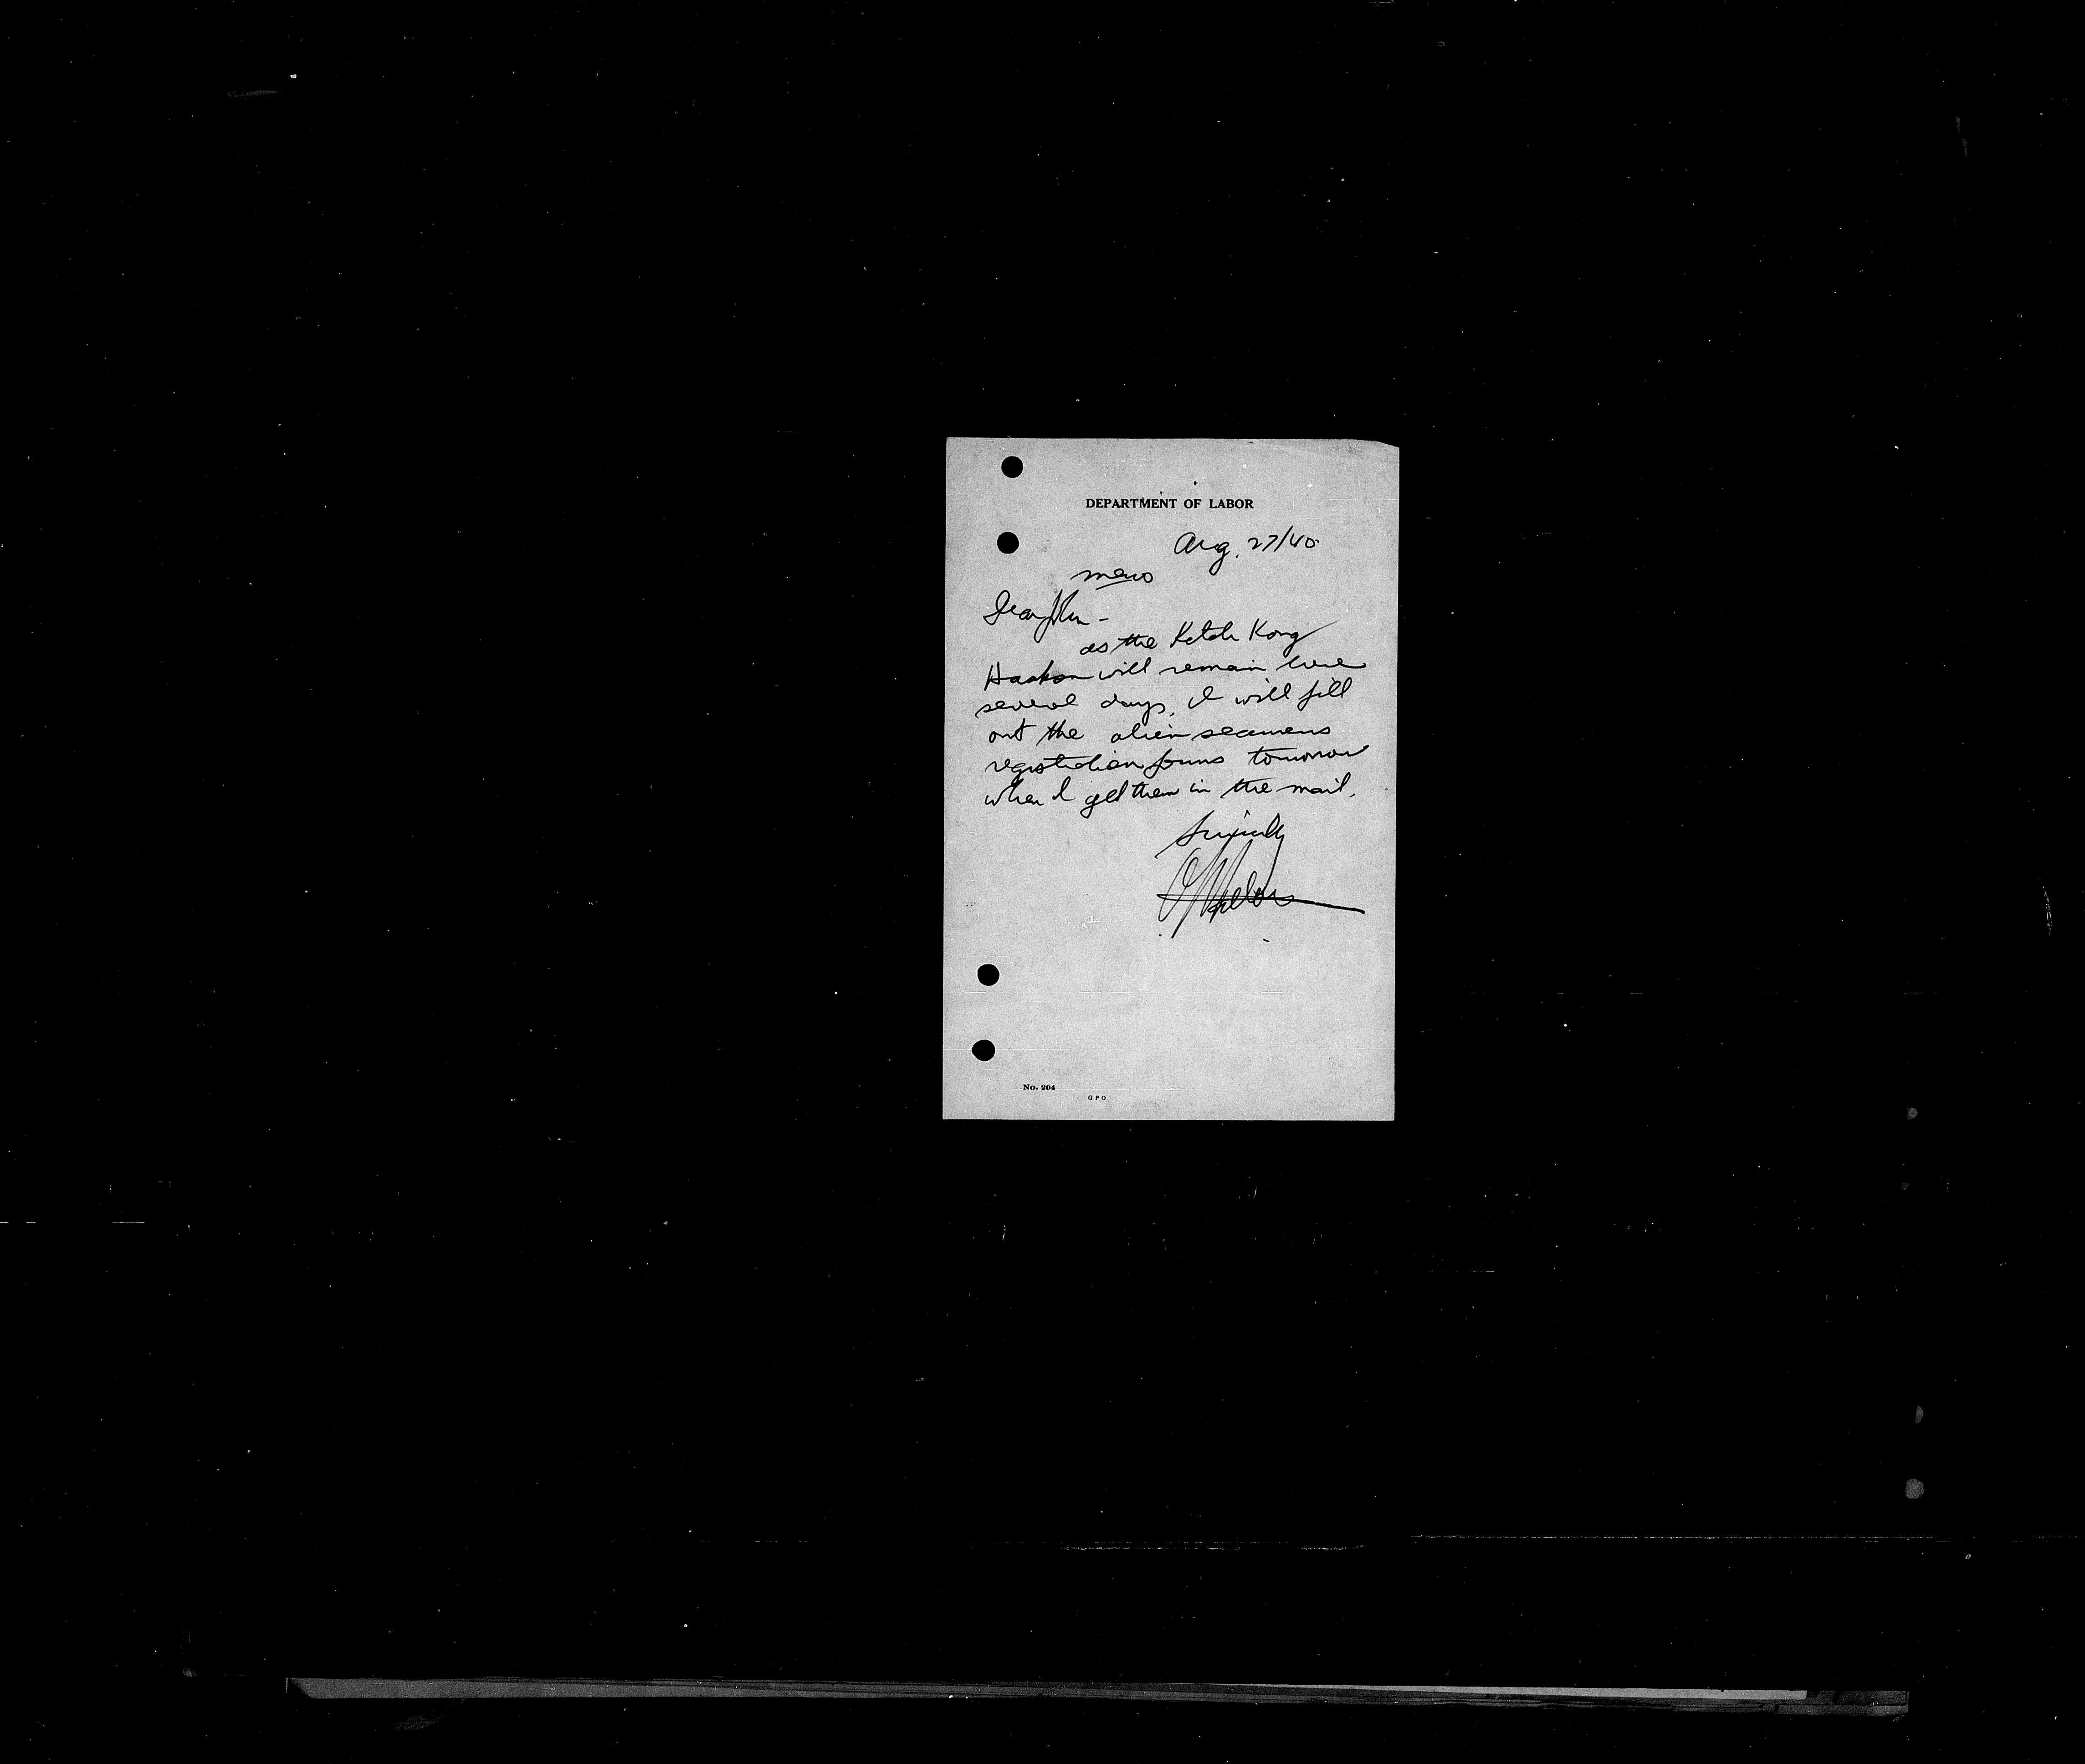 DEPARTMENT OF LABOR
Aug. 27/40
memo
Dear John -
as the Ketch Kong
Haakon will remain here
several days, I will fill
out the alien seamens
registration forms tomorrow
when I get them in the mail.
No. 204
GPO